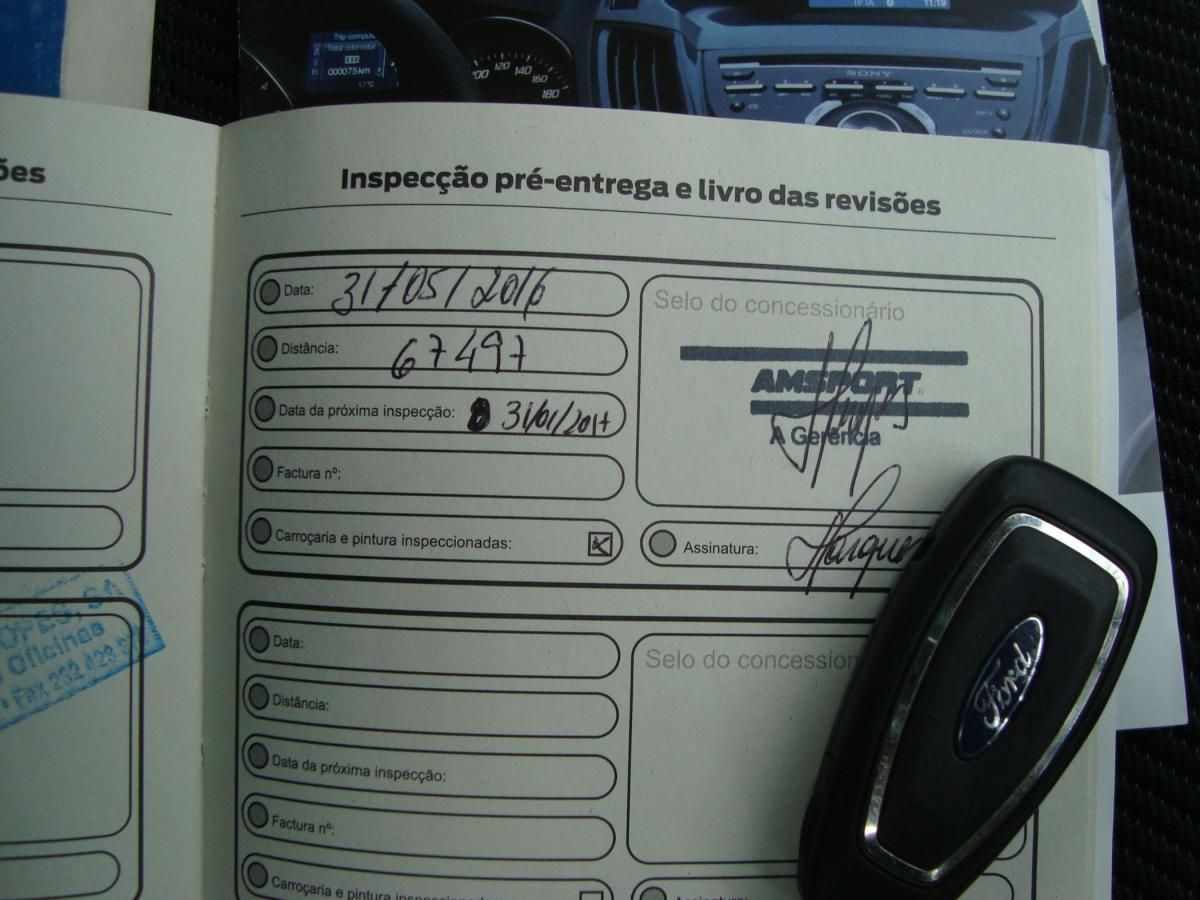 Trip computer
Total odometer
000075km
100 120 140 160 180
11:19
SONY
ões
Inspecção pré-entrega e livro das revisões
Data: 31/05/2016
Distância: 67497
Data da próxima inspecção: 31/01/2017
Factura nº:
Carroçaria e pintura inspeccionadas:
Selo do concessionário
AMSPORT
A Gerência
Assinatura:
OPES, SA
Oficinas
• Fax 232 423
Data:
Distância:
Data da próxima inspecção:
Factura nº:
Carroçaria e pintura
Selo do concession
Ford